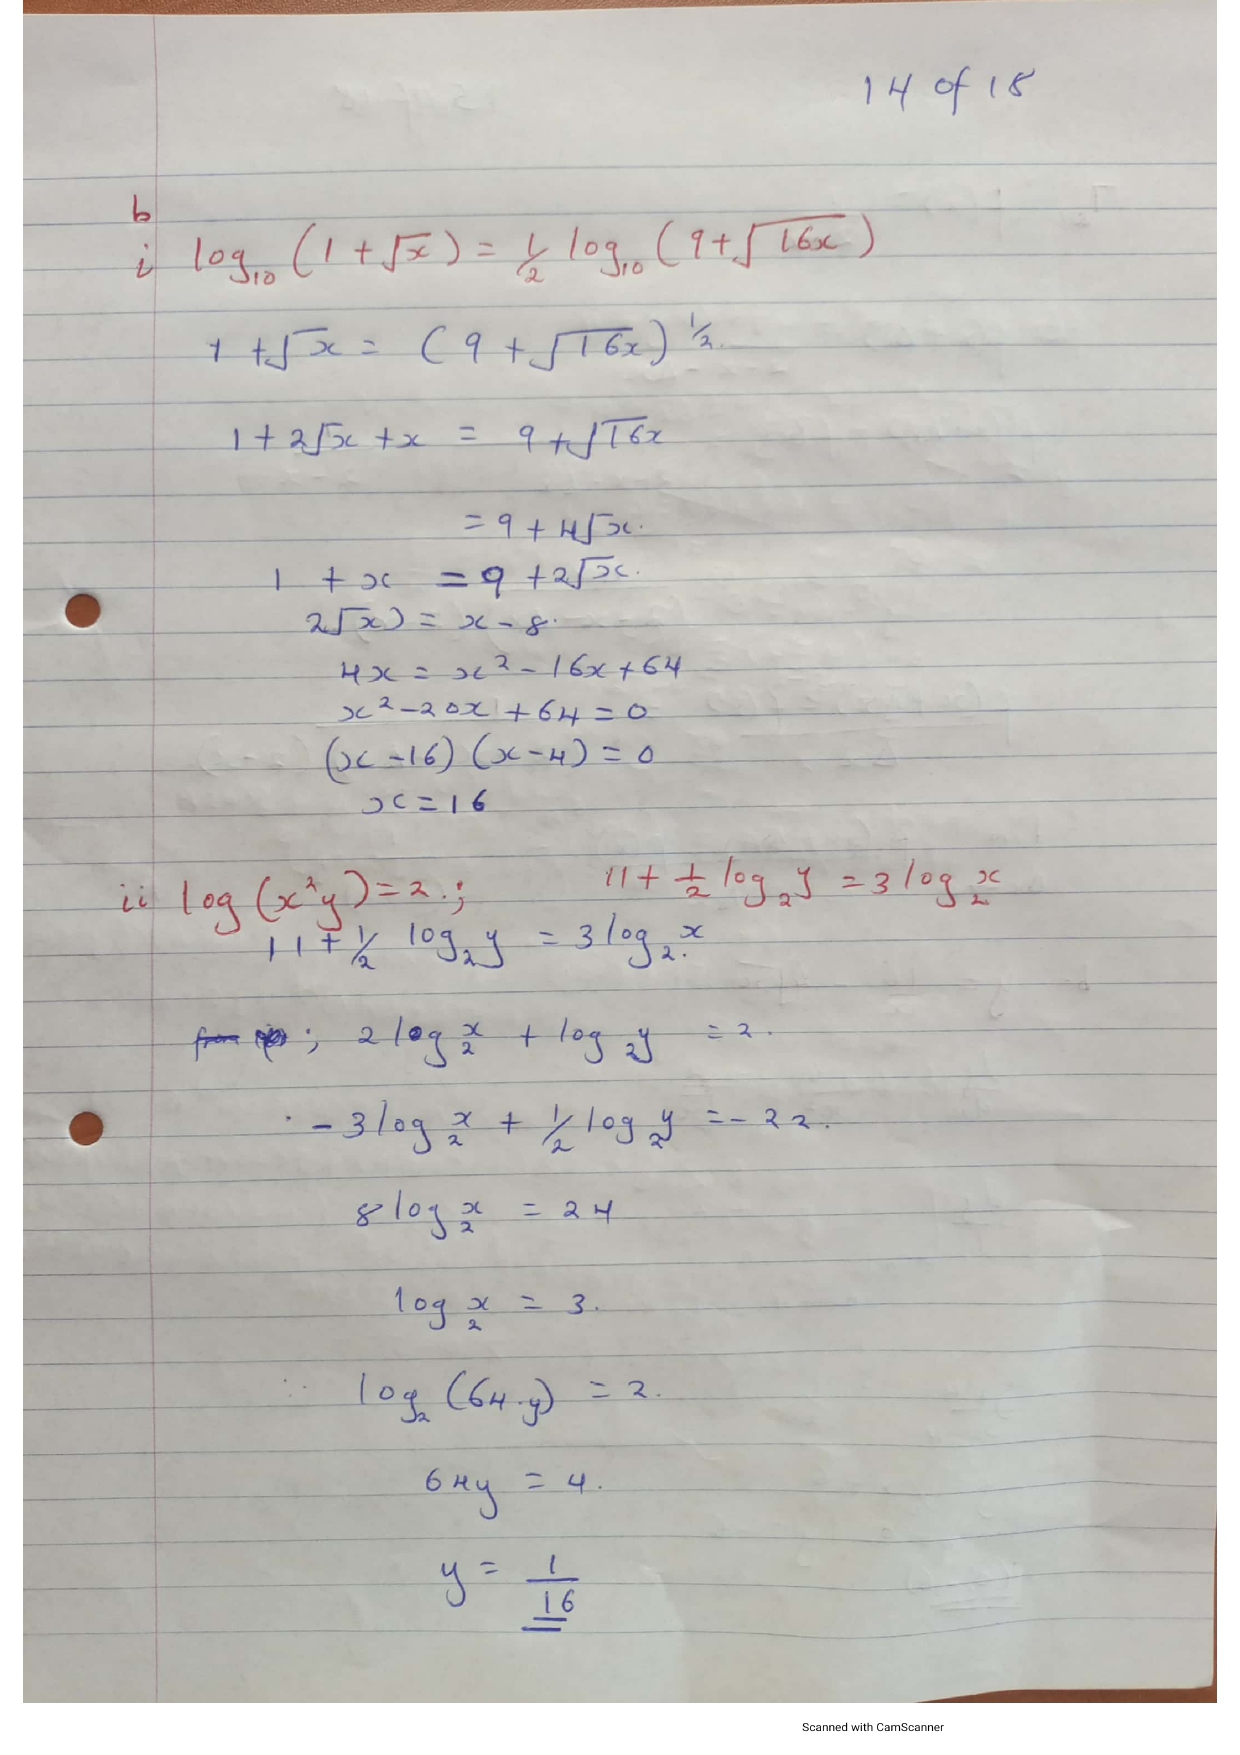 14 of 18
b
i log₁₀ (1 + √x) = 1/2 log₁₀ (9 + √16x)
1 + √x = (9 + √16x)^1/2.
1 + 2√x + x = 9 + √16x
= 9 + 4√x.
1 + x = 9 + 2√x.
2√x) = x - 8.
4x = x² - 16x + 64
x² - 20x + 64 = 0
(x - 16) (x - 4) = 0
x = 16
ii log (x²y) = 2.; 11 + 1/2 log₂y = 3 log₂x
11 + 1/2 log₂y = 3 log₂x
; 2 log₂x + log₂y = 2.
- 3 log₂x + 1/2 log₂y = - 22.
8 log₂x = 24
log₂x = 3.
log₂ (64.y) = 2.
64y = 4.
y = 1/16
Scanned with CamScanner